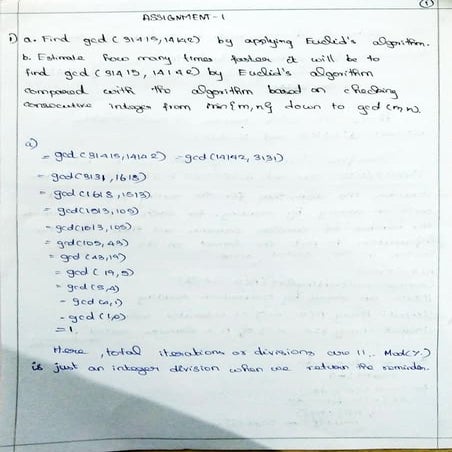 1
ASSIGNMENT - 1
1) a. Find gcd (31415, 14142) by applying Euclid's algorithm.
b. Estimate how many times faster it will be to
find gcd (31415, 14142) by Euclid's algorithm
compared with the algorithm based on checking
consecutive integer from min {m, n} down to gcd (m, n).
a)
= gcd (31415, 14142) = gcd (14142, 3131)
= gcd (3131, 1618)
= gcd (1618, 1513)
= gcd (1513, 105)
= gcd (1513, 105)
= gcd (105, 43)
= gcd (43, 19)
= gcd (19, 5)
= gcd (5, 4)
= gcd (4, 1)
= gcd (1, 0)
= 1.
Here, total iterations or divisions are 11. Mod(%)
is just an integer division when we return the reminder.